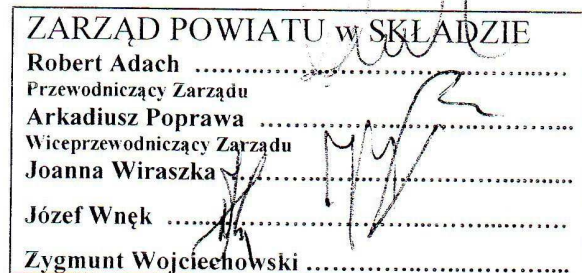 ZARZĄD POWIATU w SKŁADZIE
Robert Adach ........................................
Przewodniczący Zarządu
Arkadiusz Poprawa ........................................
Wiceprzewodniczący Zarządu
Joanna Wiraszka ........................................
Józef Wnęk ........................................
Zygmunt Wojciechowski ........................................